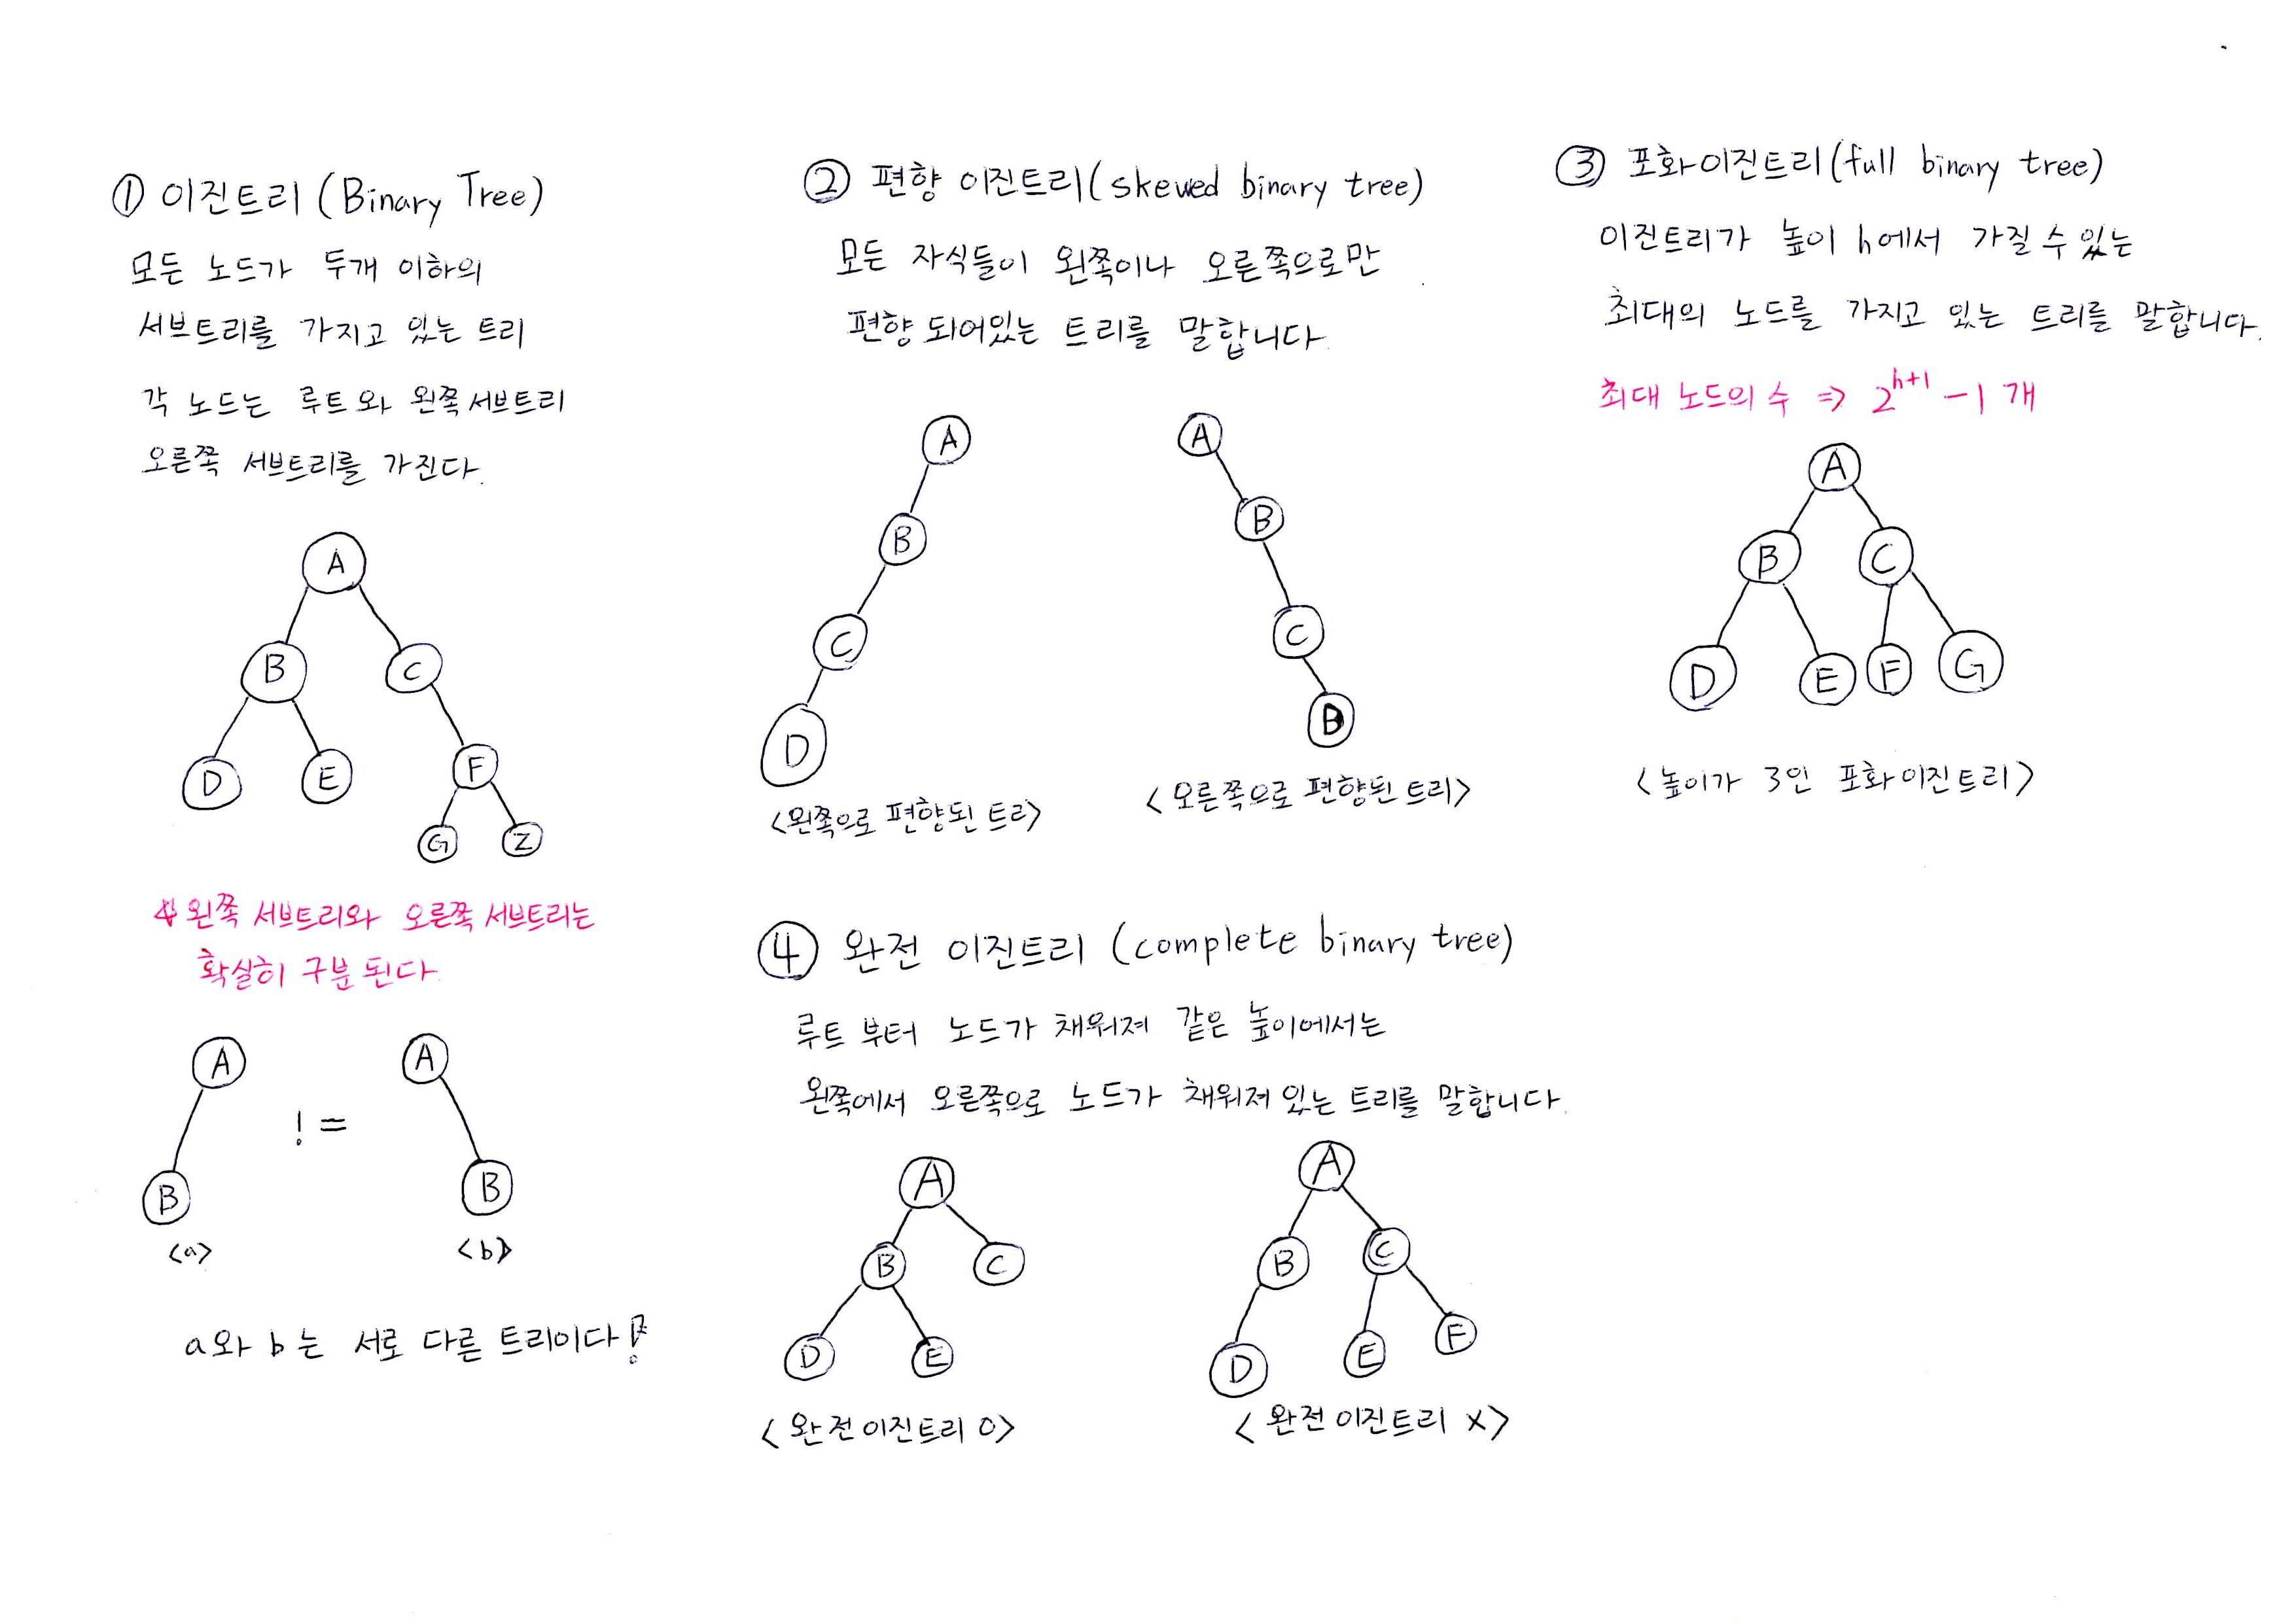 ① 이진트리 (Binary Tree)
모든 노드가 두개 이하의
서브트리를 가지고 있는 트리
각 노드는 루트와 왼쪽서브트리
오른쪽 서브트리를 가진다.
A
B C
D E F
G Z
왼쪽 서브트리와 오른쪽 서브트리는
확실히 구분된다.
A != A
B B
<a> <b>
a와 b는 서로 다른 트리이다!
② 편향 이진트리(skewed binary tree)
모든 자식들이 왼쪽이나 오른쪽으로만
편향 되어있는 트리를 말합니다.
A
B
C
D
<왼쪽으로 편향된 트리>
A
B
C
<오른쪽으로 편향된 트리>
③ 포화이진트리(full binary tree)
이진트리가 높이 h에서 가질 수 있는
최대의 노드를 가지고 있는 트리를 말합니다.
최대 노드의 수 ⇒ 2^{h+1} - 1 개
A
B C
D E F G
<높이가 3인 포화이진트리>
④ 완전 이진트리 (complete binary tree)
루트 부터 노드가 채워져 같은 높이에서는
왼쪽에서 오른쪽으로 노드가 채워져 있는 트리를 말합니다.
A
B C
D E
<완전이진트리 O>
A
B C
D E F
<완전이진트리 X>